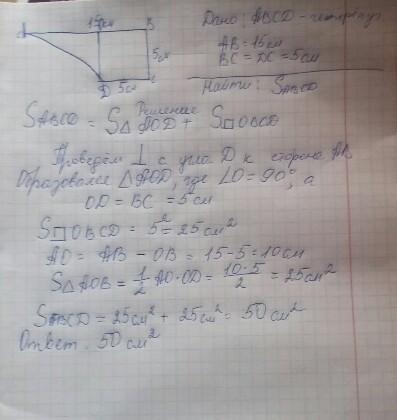 A 15см B Дано: ABCD - четырёхуг.
AB = 15см
5см BC = DC = 5см
D 5см C Найти: SABCD
Решение
SABCD = S△ AOD + S□ OBCD
Проведём ⊥ с угла D к стороне AB
Образовался △AOD, где ∠O = 90°, а
OD = BC = 5см
S□OBCD = 5² = 25см²
AO = AB - OB = 15-5=10см
S△AOB = 1/2 AO·OD = 10·5/2 = 25см²
SABCD = 25см² + 25см² = 50см²
Ответ: 50см²